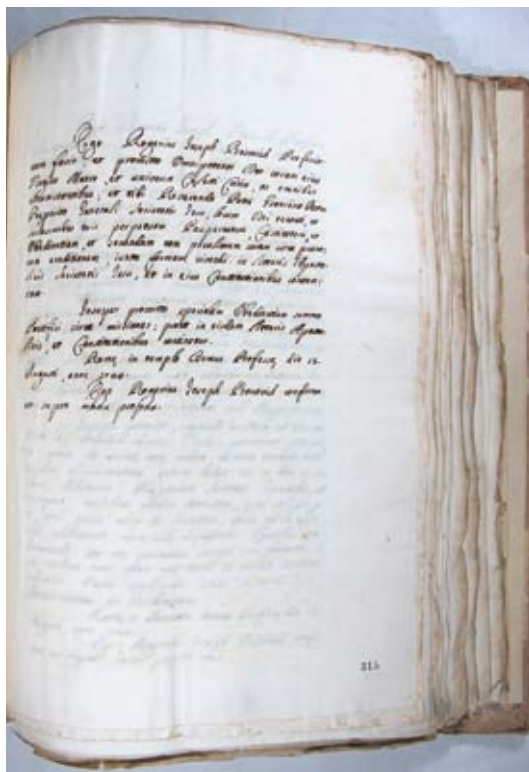 Ego Rogerius Joseph Boscovich Professio
nem facio, et promitto Omnipotenti Deo coram eius
Virgine Matre, et universa Cælesti Curia, ac omnibus
circumstantibus, et tibi Reverendo Patri
Præposito Generali Societatis Jesu, locum Dei tenenti, et
successoribus tuis perpetuam Paupertatem, Castitatem, et
Obedientiam, et secundum eam peculiarem curam circa puero
rum eruditionem, iuxta formam vivendi in Literis Aposto
licis Societatis Jesu, et in eius Constitutionibus conten
tam.
Insuper promitto specialem Obedientiam summo
Pontifici circa missiones; prout in eisdem Literis Aposto
licis, et Constitutionibus continetur.
Romæ in templo Domus Professæ die
Augusti, anni
Ego Rogerius Joseph Boscovich
ut supra manu propria.
315